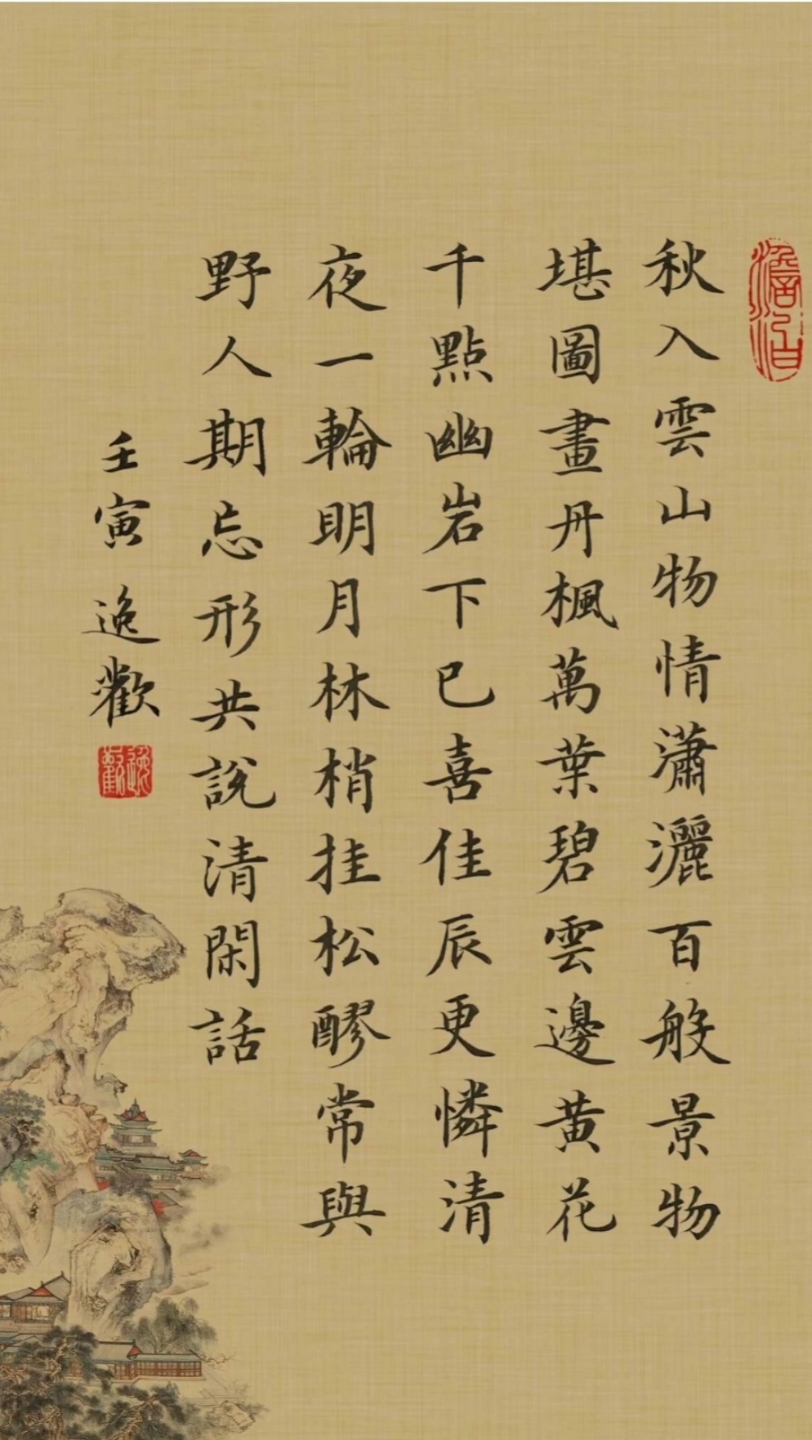 澹泊
秋入雲山物情瀟灑百般景物
堪圖畫丹楓萬葉碧雲邊黃花
千點幽岩下已喜佳辰更憐清
夜一輪明月林梢挂松醪常與
野人期忘形共說清閑話
壬寅逸歡
逸歡